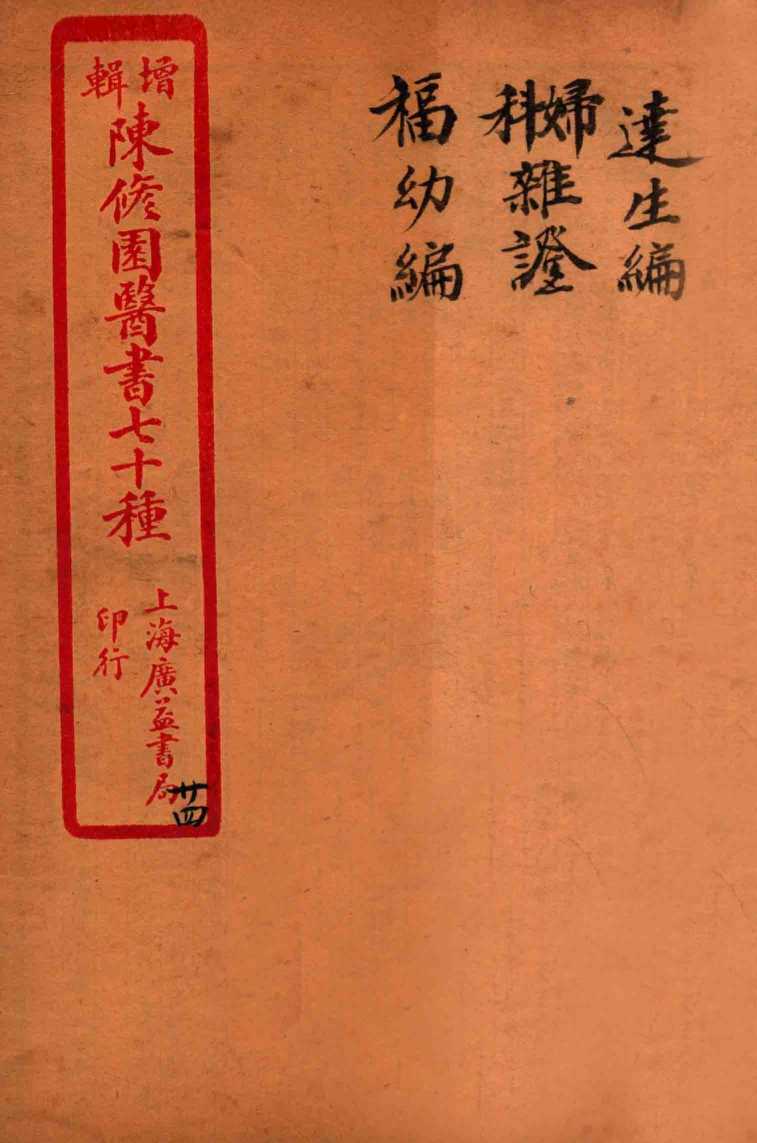 達生編
婦科雜證
福幼編
增輯
陳修園醫書七十種
上海廣益書局
印行
廿四